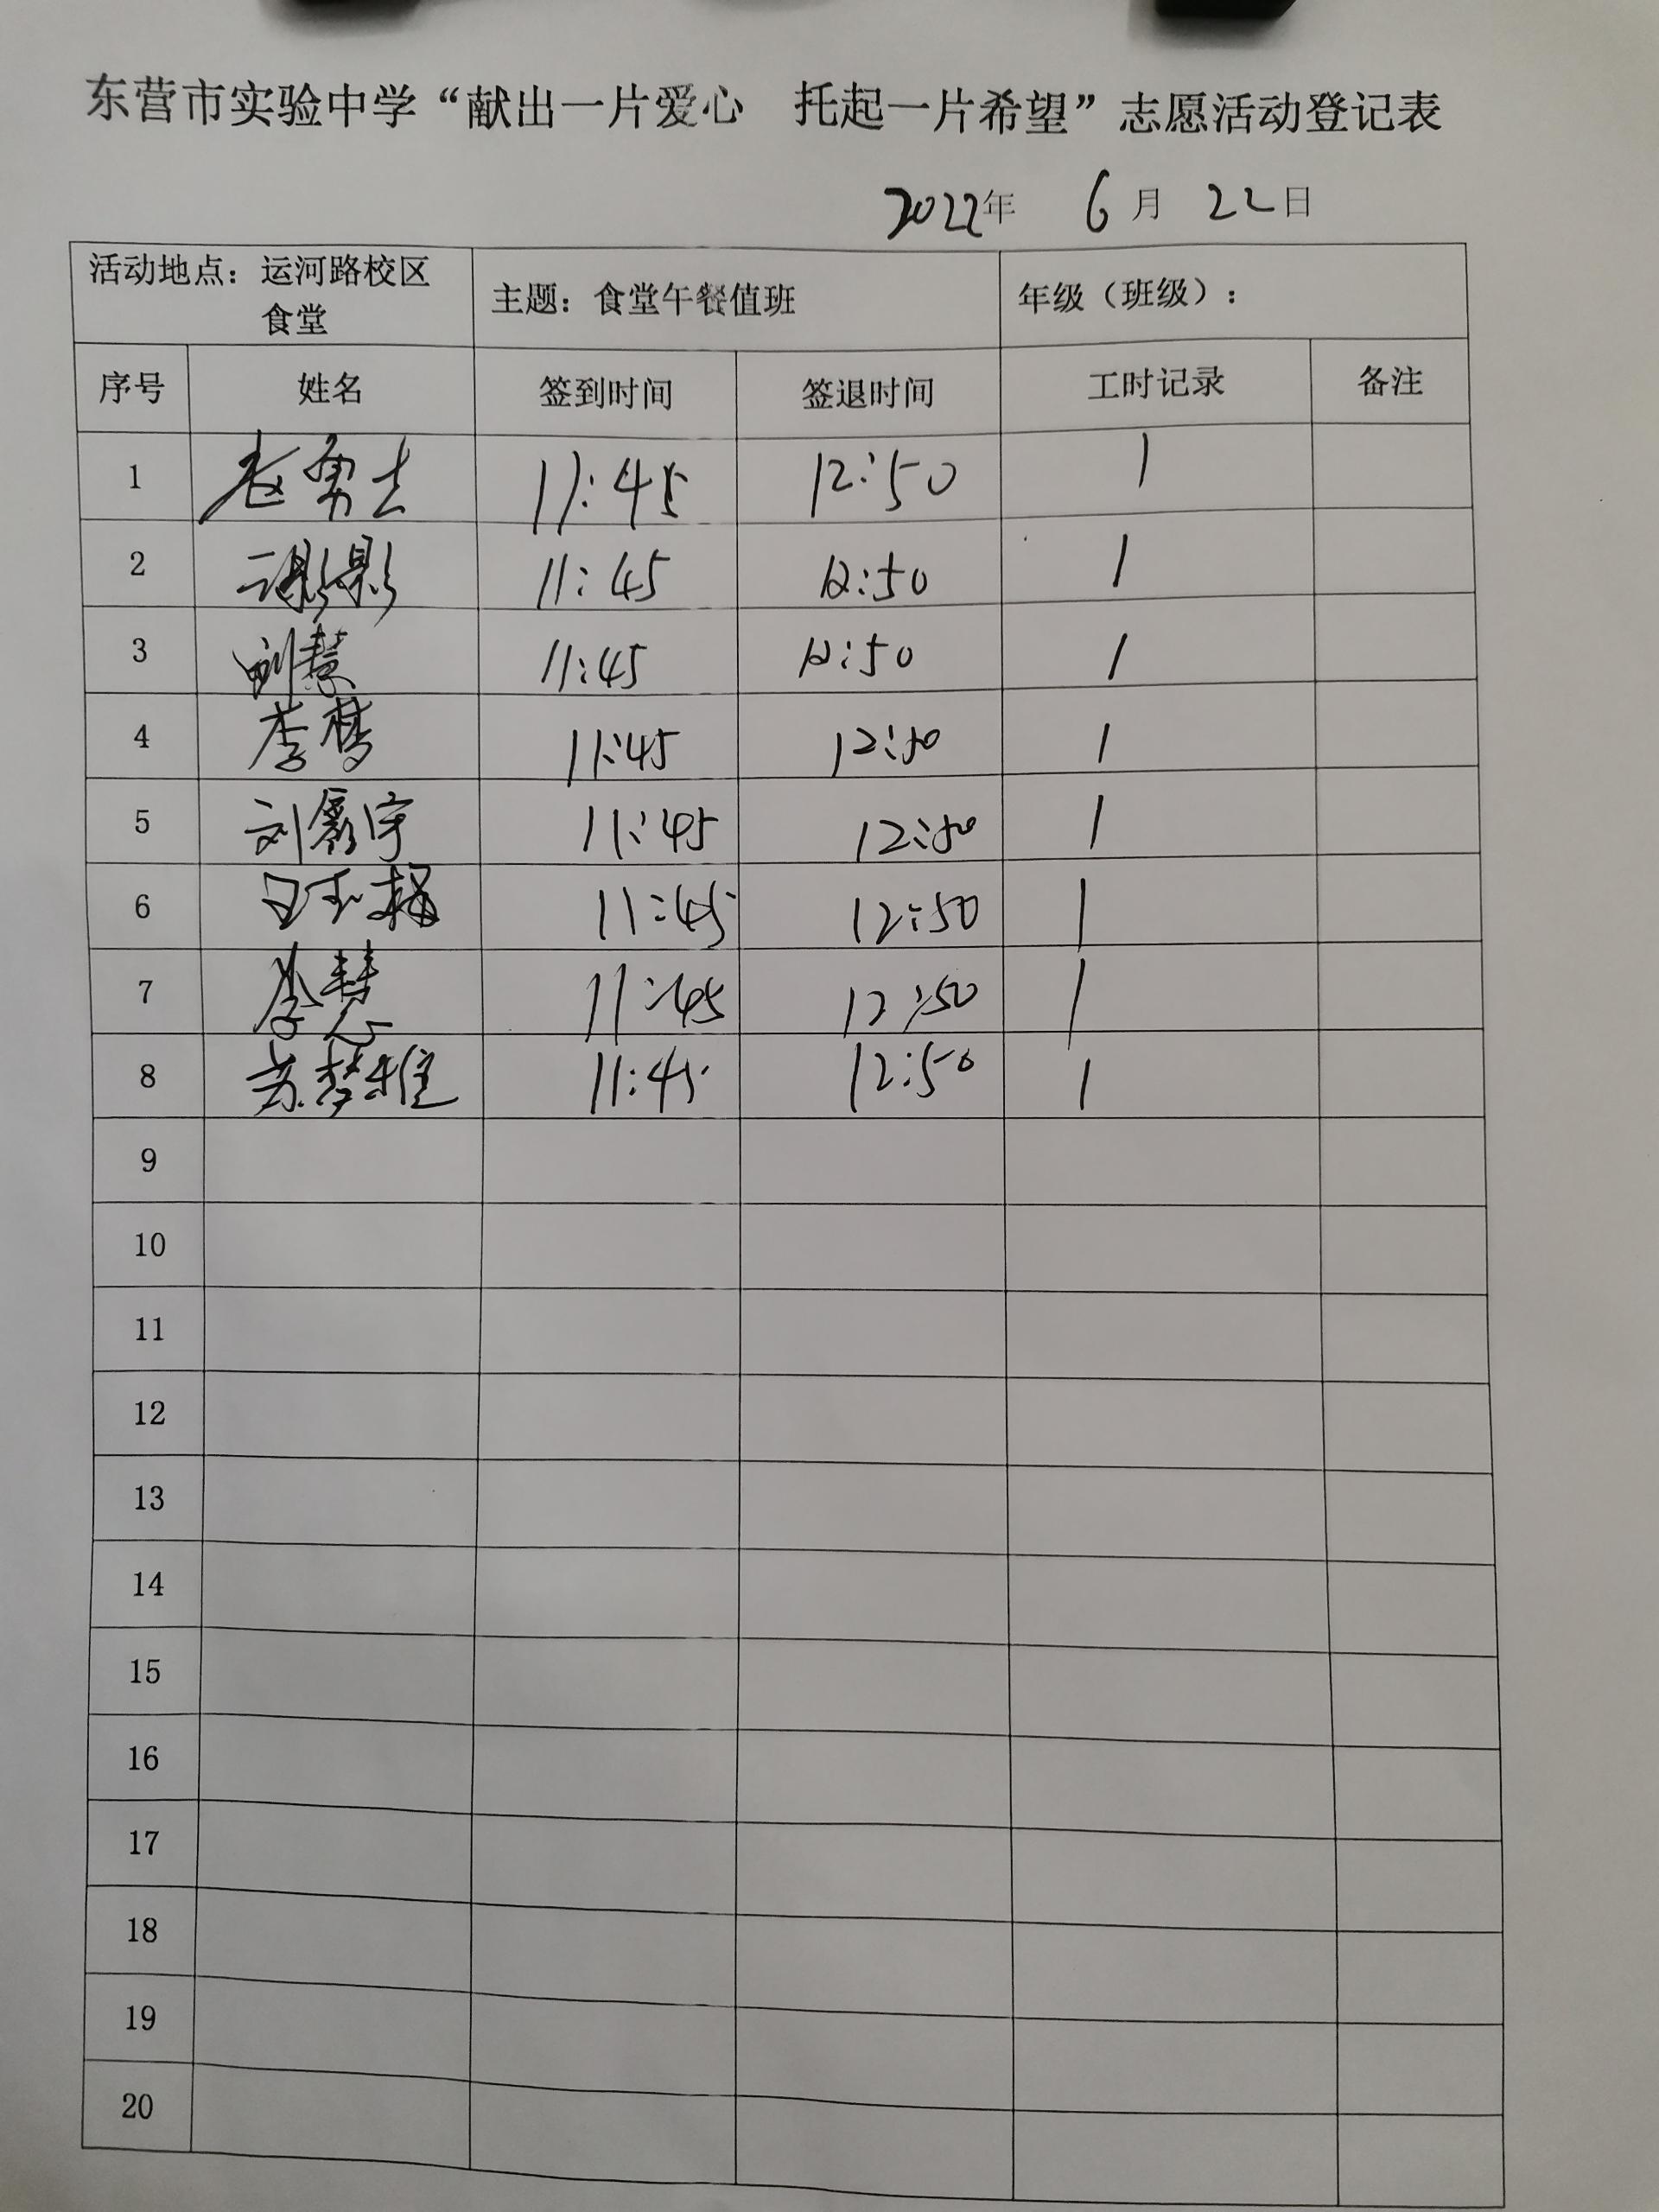 东营市实验中学“献出一片爱心　托起一片希望”志愿活动登记表
2022年 6月 22日
活动地点：运河路校区食堂 主题：食堂午餐值班 年级（班级）：
序号 姓名 签到时间 签退时间 工时记录 备注
1 11:45 12:50 1
2 11:45 12:50 1
3 刘慧 11:45 12:50 1
4 李梦 11:45 12:50 1
5 刘宇 11:45 12:50 1
6 11:45 12:50 1
7 李慧 11:45 12:50 1
8 苏梦雅 11:45 12:50 1
9
10
11
12
13
14
15
16
17
18
19
20